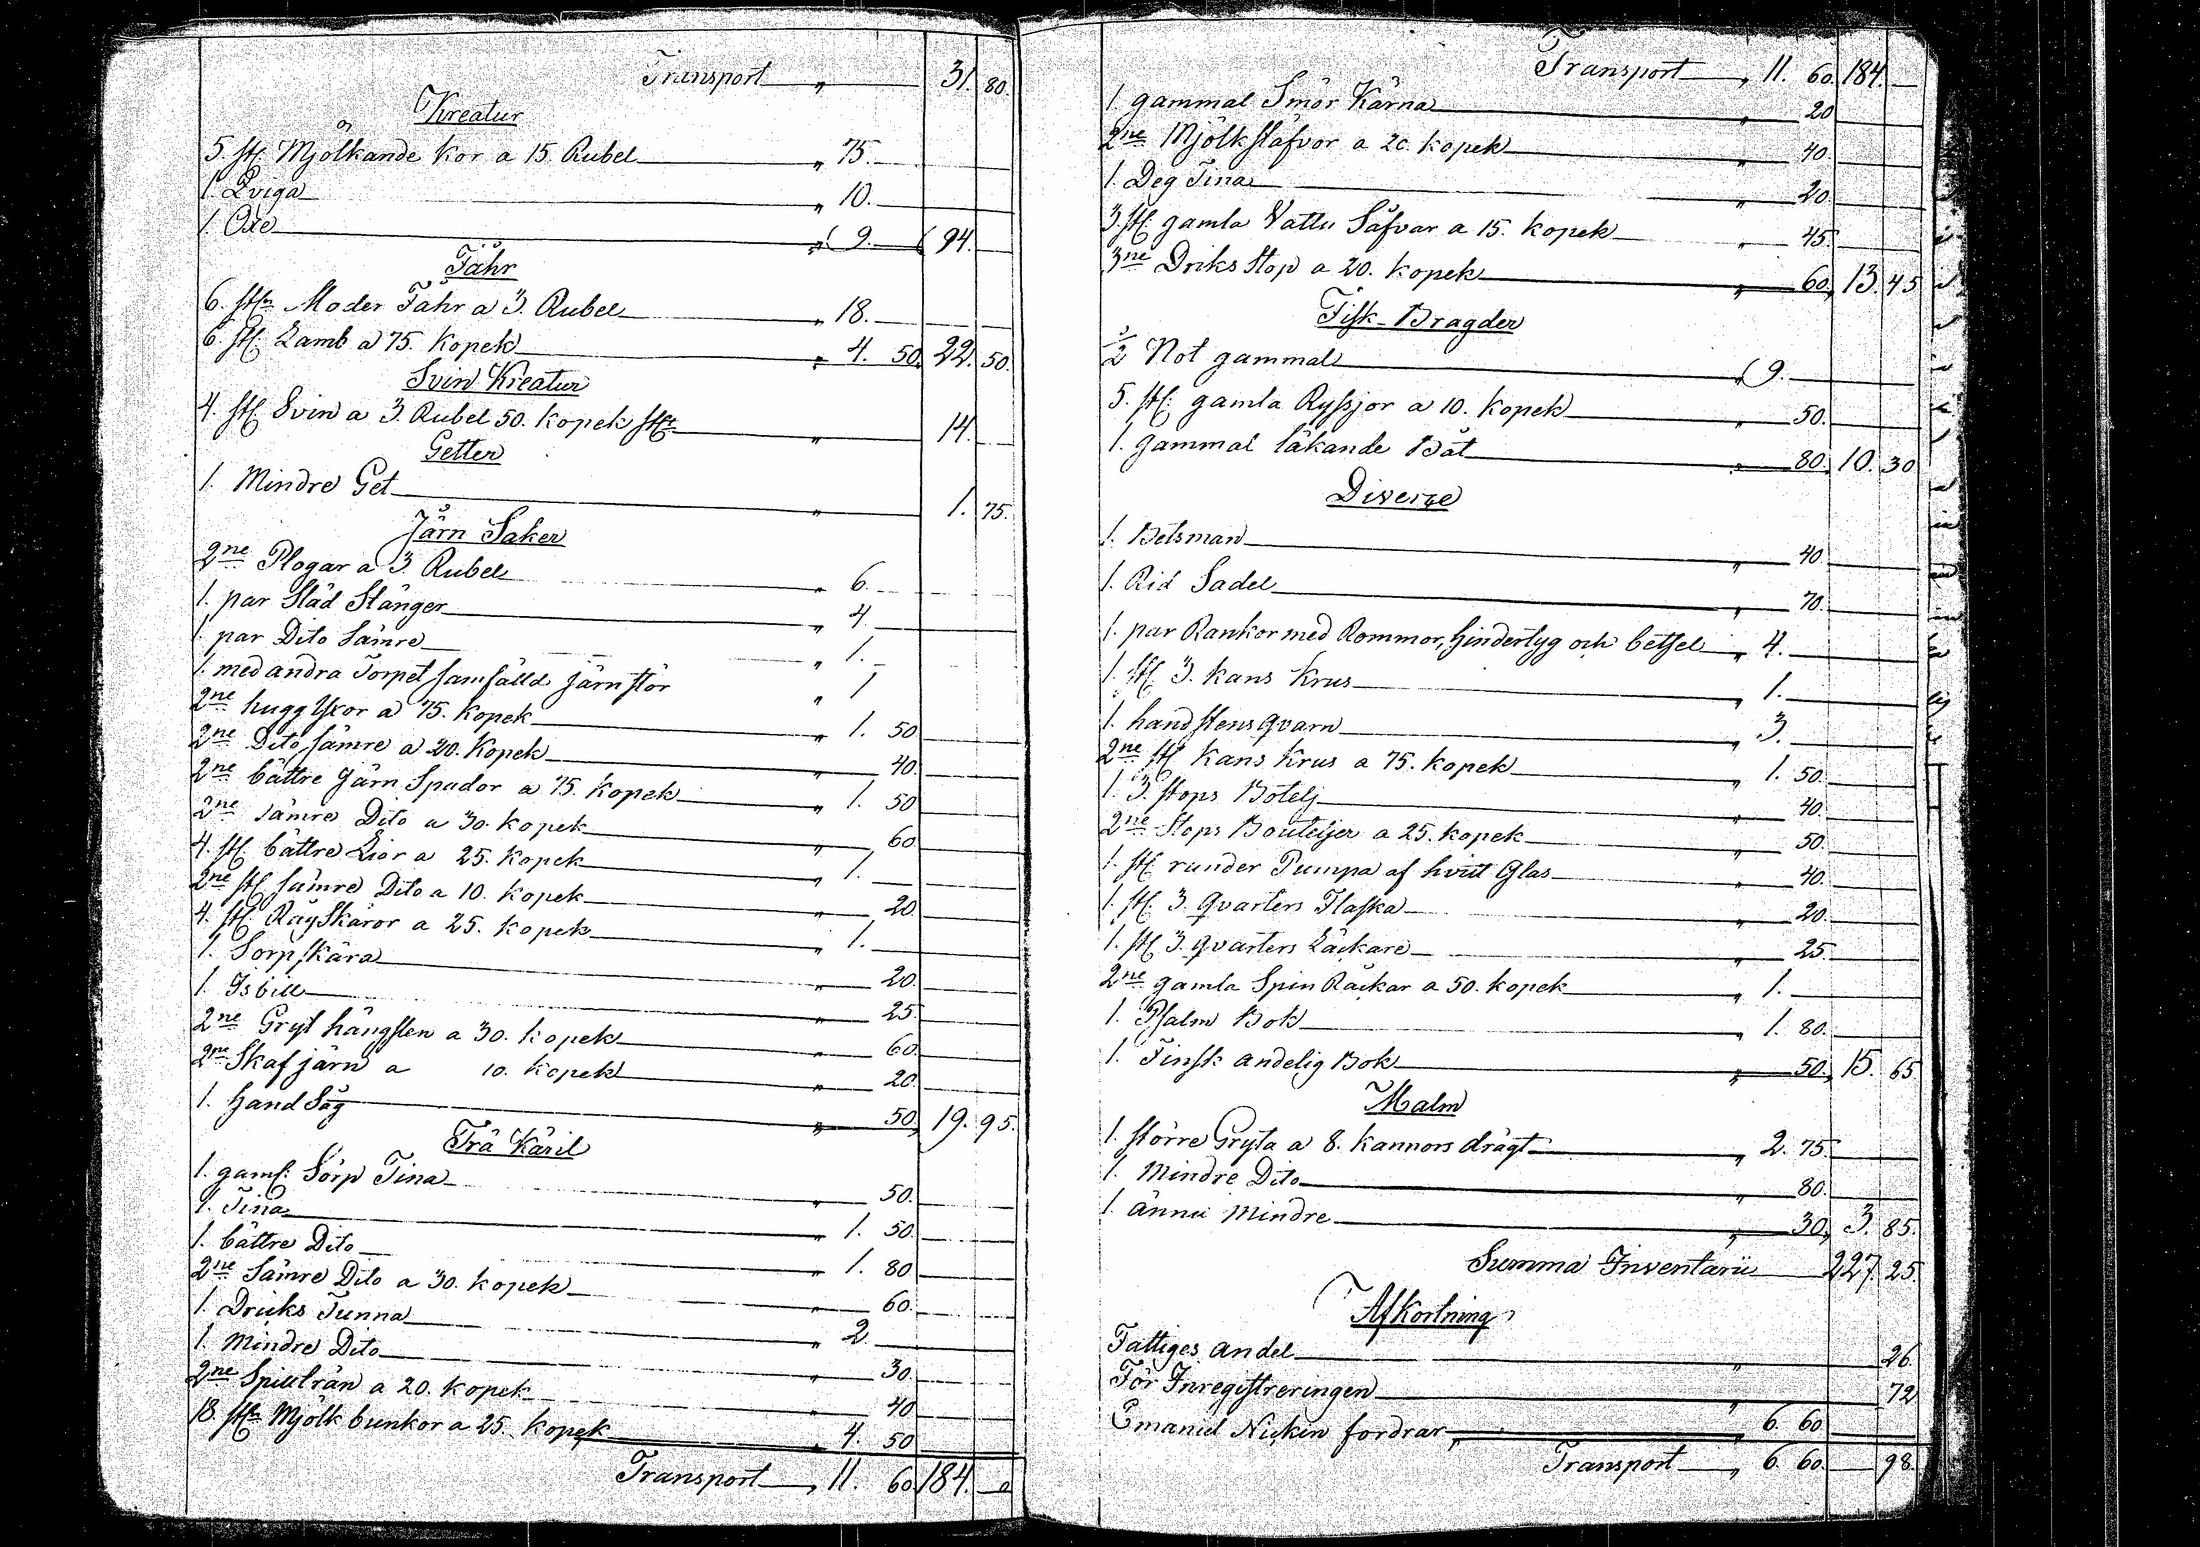 Transport " 31. 80.
Kreatur
5. st. Mjölkande Kor a 15. Rubel " 75.
1. Qviga " 10.
1. Oxe " 9. 94.
Fåhr
6. st. Moder Fåhr a 3. Rubel " 18.
6. st. Lamb a 75. Kopek " 4. 50. 22. 50.
Svin Kreatur
4. st. Svin a 3. Rubel 50. Kopek st. " 14.
Getter
1. Mindre Get " 1. 75.
Järn Saker
2ne Plogar a 3 Rubel " 6.
1. par Släd Stänger " 4.
1. par Dito Sämre " 1.
1. med andra Torpet samfälld Järnstör " 1
2ne hugg Yxor a 75. Kopek " 1. 50
2ne Dito sämre a 20. Kopek " 40.
2ne bättre Järn Spador a 75. Kopek " 1. 50
2ne sämre Dito a 30. Kopek " 60.
4. st. bättre Lior a 25. Kopek " 1.
2ne st. sämre Dito a 10. Kopek " 20.
4. st. Råg Skäror a 25. Kopek " 1.
1. Sörpskära " 20.
1. Isbill " 25.
2ne Gryt hängslen a 30. Kopek " 60.
2ne Skafjärn a 10. Kopek " 20.
1. Hand Såg " 50. 19. 95.
Trä Käril
1. gaml: Sörp Tina " 50.
1. Tina " 1. 50.
1. bättre Dito " 1. 80
2ne Sämre Dito a 30. Kopek " 60.
1. Dricks Tunna " 2.
1. Mindre Dito " 30.
2ne Spillrån a 20. Kopek " 40
18. st. Mjölk bunkor a 25. Kopek " 4. 50
Transport " 11. 60. 184.
Transport " 11. 60. 184.
1. gammal Smör Kärna " 20
2ne Mjölkstäfvor a 20. Kopek " 40.
1. Deg Tina " 20.
3. st. gamla Vattu Såfvar a 15. Kopek " 45.
3ne Driks stop a 20. Kopek " 60. 13. 45
Fisk-Bragder
1/2 Not gammal " 9.
5. st. gamla Ryssjor a 10. Kopek " 50.
1. gammal läkande Båt " 80. 10. 30
Diverse
1. Betsman " 40.
1. Rid Sadel " 70.
1. par Rankor med Rommor, hindertyg och betsel " 4.
1. st. 3. Kans Krus " 1.
1. handstensqvarn " 3.
2ne st. Kans Krus a 75. Kopek " 1. 50.
1. 3. stops Botelj " 40.
2ne Stops Bouteljer a 25. Kopek " 50.
1. st. runder Pumpa af hvitt Glas " 40.
1. st. 3. Qvarters Flaska " 20.
1. st. 3. Qvarters Läckare " 25.
2ne gamla Spin Råckar a 50. Kopek " 1.
1. Psalm Bok " 1. 80.
1. Finsk andelig Bok " 50. 15. 65.
Malm
1. större Gryta a 8. Kannors drägt " 2. 75.
1. Mindre Dito " 80.
1. ännu Mindre " 30. 3. 85.
Summa Inventarii 227. 25.
Afkortning
Fattiges andel " 26.
För Inregistreringen " 72
Emanuel Nickin fordrar " 6. 60.
Transport " 6. 60. 98.